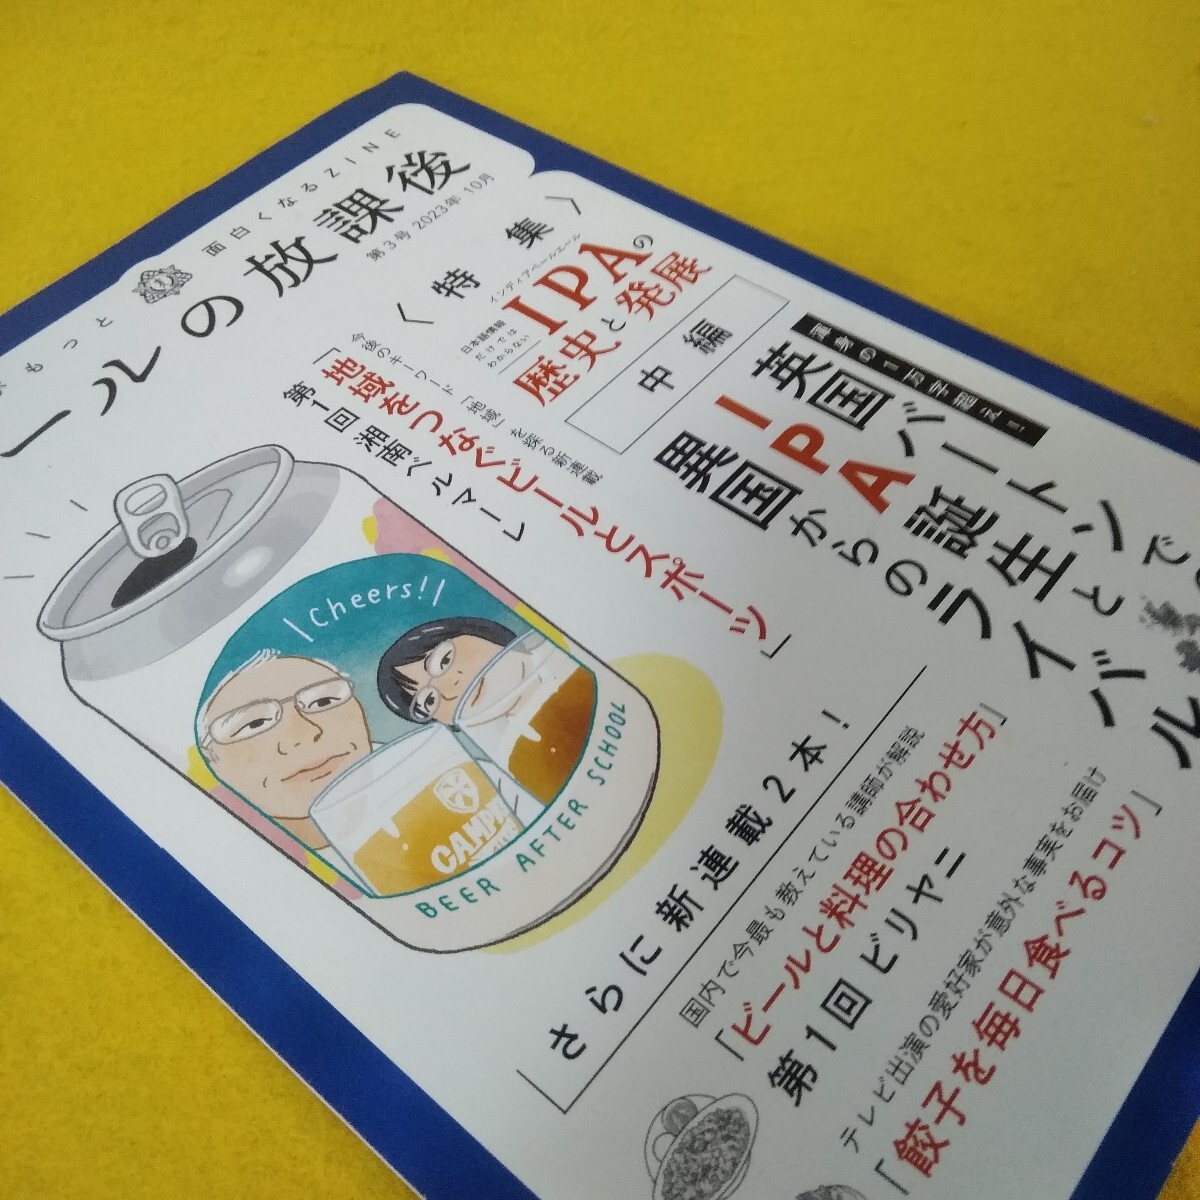 もっと
面白くなるZINE
ールの放課後
第3号 2023年 10月
〈特集〉
インディアペールエール
日本語情報
だけでは
わからない
IPAの
歴史と発展
中編
渾身の1万字超え!
英国バートンで
IPA誕生と
異国からのライバル
今後のキーワード「地域」を探る新連載
「地域をつなぐビールとスポーツ」
第1回 湘南ベルマーレ
Cheers!
BEER AFTER SCHOOL
さらに新連載2本!
国内で今最も教えている講師が解説
「ビールと料理の合わせ方」
第1回 ビリヤニ
テレビ出演の愛好家が意外な事実をお届け
「餃子を毎日食べるコツ」